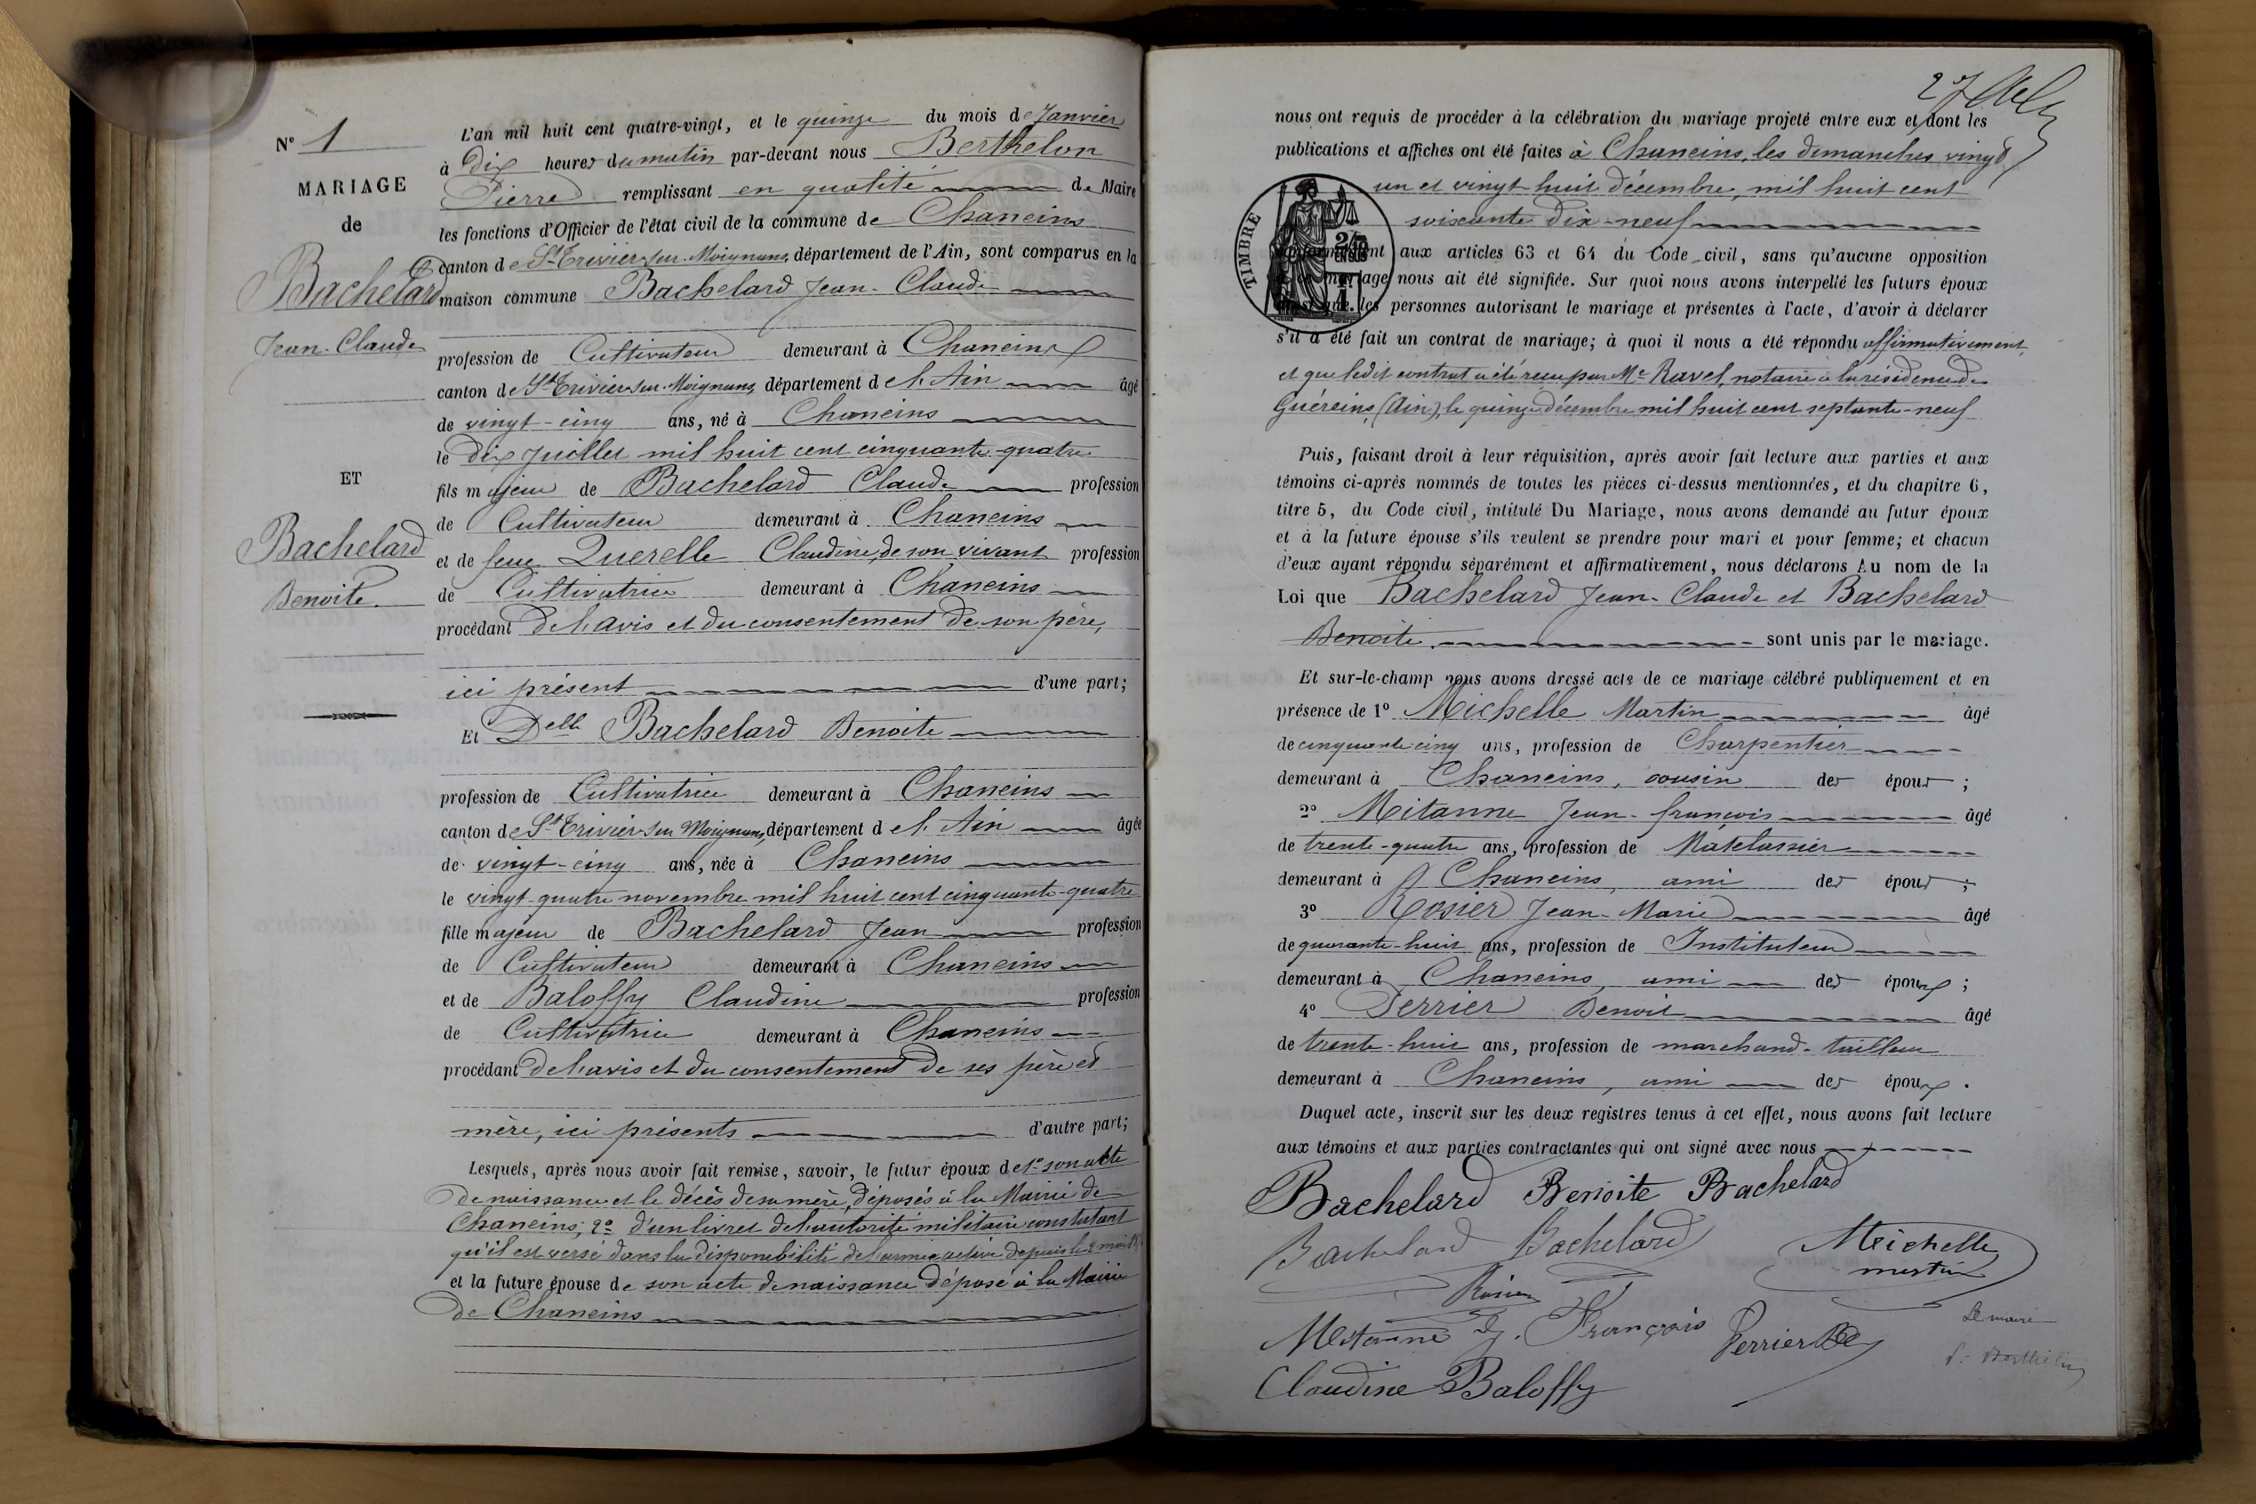 N° 1
MARIAGE
de
Bachelard
Jean-Claude
ET
Bachelard
Benoite.
L'an mil huit cent quatre-vingt, et le quinze du mois de Janvier
à Dix heures du matin par-devant nous Berthelon
Pierre remplissant en qualité de Maire
les fonctions d'Officier de l'état civil de la commune de Chaneins
canton de St Trivier-sur-Moignans, département de l'Ain, sont comparus en la
maison commune Bachelard Jean-Claude
profession de Cultivateur demeurant à Chaneins
canton de St Trivier-sur-Moignans, département de l'Ain âgé
de vingt-cinq ans, né à Chaneins
le dix juillet mil huit cent cinquante-quatre
fils majeur de Bachelard Claude profession
de Cultivateur demeurant à Chaneins
et de feue Querelle Claudine, de son vivant profession
de Cultivatrice demeurant à Chaneins
procédant de l'avis et du consentement de son père,
ici présent d'une part;
Et Delle Bachelard Benoite
profession de Cultivatrice demeurant à Chaneins
canton de St Trivier-sur Moignans, département de l'Ain âgée
de vingt-cinq ans, née à Chaneins
le vingt-quatre novembre mil huit cent cinquante-quatre
fille majeur de Bachelard Jean profession
de Cultivateur demeurant à Chaneins
et de Baloffy Claudine profession
de Cultivatrice demeurant à Chaneins
procédant de l'avis et du consentement de ses père et
mère, ici présents d'autre part;
Lesquels, après nous avoir fait remise, savoir, le futur époux de 1° son acte
de naissance et le décès de sa mère, déposés à la Mairie de
Chaneins; 2° d'un livret de l'autorité militaire constatant
qu'il est versé dans la disponibilité de l'armée active depuis le
et la future épouse de son acte de naissance déposé à la Mairie
de Chaneins
27
nous ont requis de procéder à la célébration du mariage projeté entre eux et dont les
publications et affiches ont été faites à Chaneins, les dimanches vingt
un et vingt-huit décembre, mil huit cent
soixante dix-neuf
TIMBRE
aux articles 63 et 64 du Code civil, sans qu'aucune opposition
mariage nous ait été signifiée. Sur quoi nous avons interpellé les futurs époux
les personnes autorisant le mariage et présentes à l'acte, d'avoir à déclarer
s'il a été fait un contrat de mariage; à quoi il nous a été répondu affirmativement,
et que ledit contrat a été reçu par Me Ravel, notaire à la résidence de
Guéreins, (Ain), le quinze décembre mil huit cent septante-neuf
Puis, faisant droit à leur réquisition, après avoir fait lecture aux parties et aux
témoins ci-après nommés de toutes les pièces ci-dessus mentionnées, et du chapitre 6,
titre 5, du Code civil, intitulé Du Mariage, nous avons demandé au futur époux
et à la future épouse s'ils veulent se prendre pour mari et pour femme; et chacun
d'eux ayant répondu séparément et affirmativement, nous déclarons Au nom de la
Loi que Bachelard Jean-Claude et Bachelard
Benoite. sont unis par le mariage.
Et sur-le-champ nous avons dressé acte de ce mariage célébré publiquement et en
présence de 1° Michelle Martin âgé
de cinquante cinq ans, profession de Charpentier
demeurant à Chaneins, cousin des époux;
2° Mitanne Jean-françois âgé
de trente-quatre ans, profession de Matelassier
demeurant à Chaneins, ami des époux;
3° Rosier Jean-Marie âgé
de quarante-huit ans, profession de Instituteur
demeurant à Chaneins, ami des époux;
4° Perrier Benoit âgé
de trente-huit ans, profession de marchand-tailleur
demeurant à Chaneins, ami des époux.
Duquel acte, inscrit sur les deux registres tenus à cet effet, nous avons fait lecture
aux témoins et aux parties contractantes qui ont signé avec nous
Bachelard Benoite Bachelard
Bachelard Bachelard Michelle
martin
Rosier
Mitanne J. François Perrier Be
Le maire
P. Berthelon
Claudine Baloffy